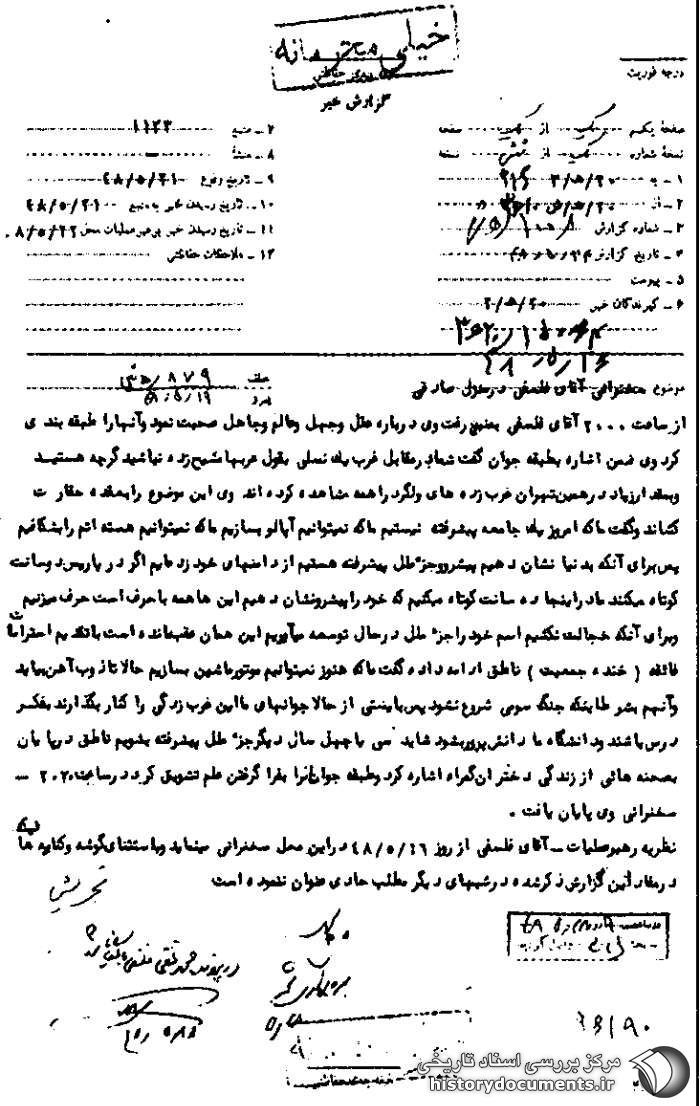 خیلی محرمانه
درجه حفاظتی
درجه فوریت
گزارش خبر
صفحه یکم از یک صفحه
نسخه شماره یک از شش نسخه
۱ – به ۳۱۶
۲ – از ۲۰/ﻫ۵/۲۰
۳ – شماره گزارش
۴ – تاریخ گزارش
۵ – پیوست
۶ – گیرندگان خبر
۷ – منبع ۱۱۲۳
۸ – منشأ
۹ – تاریخ وقوع ۴۸/۵/۲۱
۱۰ – تاریخ رسیدن خبر به منبع ۴۸/۵/۲۱
۱۱ – تاریخ رسیدن خبر به رهبر عملیات محل ۴۸/۵/۲۲
۱۲ – ملاحظات حفاظتی
موضوع سخنرانی آقای فلسفی در منزل صادقی
از ساعت ۲۰۰۰ آقای فلسفی بمنبر رفت وی درباره عقل وجهل وعالم وجاهل صحبت نمود وآنها را طبقه بندی
کرد وی ضمن اشاره بطبقه جوان گفت شما در مقابل غرب یک نسلی بقول عربها شیح زده نباشید گرچه هستید
وبعد ازیاد در همین تهران غرب زده های ولگرد را همه مشاهده کرده اند وی این موضوع را بعقده حقارت
کشاند وگفت ما که امروز یک جامعه پیشرفته نیستیم ما که نمیتوانیم آپالو بسازیم ما که نمیتوانیم هسته اتم را بشکافیم
پس برای آنکه بدنیا نشان دهیم پیشرو وجزء ملل پیشرفته هستیم از دامنهای خود زده ایم اگر در پاریس دو سانت
کوتاه میکنند ما در اینجا ده سانت کوتاه میکنیم که خود را پیشرو نشان دهیم این ها همه با حرف است حرف میزنیم
وبرای آنکه خجالت نکشیم اسم خود را جزء ملل در حال توسعه میآوریم این همان عقب مانده است با تقدیم احترامات
فائقه ( خنده جمعیت ) ناطق ادامه داده گفت ما که هنوز نمیتوانیم موتور ماشین بسازیم حالا تا ذوب آهن بیاید
وآنهم بشرطیکه جنگ سومی شروع نشود پس بایستی از حالا جوانهای ما این غرب زدگی را کنار بگذارند بفکر
درس باشند ودانشگاه ما دانش پرور بشود شاید سی یا چهل سال دیگر جزء ملل پیشرفته بشویم ناطق در پایان
بصحنه هائی از زندگی دختران گمراه اشاره کرد وطبقه جوان را بفرا گرفتن علم تشویق کرد در ساعت ۲۰۲۰
سخنرانی وی پایان یافت .
نظریه رهبر عملیات – آقای فلسفی از روز ۴۸/۵/۱۶ در این محل سخنرانی مینماید وباستثنای گوشه وکنایه هائیکه
در مفاد این گزارش ذکر شده در شبهای دیگر مطلب حادی عنوان ننموده است
در پرونده محمد تقی فلسفی بایگانی شود
مرکز بررسی اسناد تاریخی
historydocuments.ir